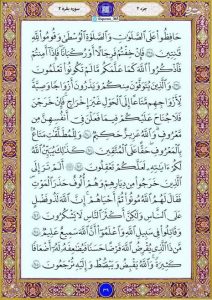 جزء ۲
سورة بقرة ۲
حَافِظُوا عَلَى الصَّلَوَاتِ وَالصَّلَوٰةِ الْوُسْطَىٰ وَقُومُوا لِلَّهِ
قَانِتِينَ فَإِنْ خِفْتُمْ فَرِجَالًا أَوْ رُكْبَانًا فَإِذَا أَمِنْتُمْ
فَاذْكُرُوا اللَّهَ كَمَا عَلَّمَكُمْ مَا لَمْ تَكُونُوا تَعْلَمُونَ
وَالَّذِينَ يُتَوَفَّوْنَ مِنْكُمْ وَيَذَرُونَ أَزْوَاجًا وَصِيَّةً
لِأَزْوَاجِهِمْ مَتَاعًا إِلَى الْحَوْلِ غَيْرَ إِخْرَاجٍ فَإِنْ خَرَجْنَ
فَلَا جُنَاحَ عَلَيْكُمْ فِي مَا فَعَلْنَ فِي أَنْفُسِهِنَّ مِنْ
مَعْرُوفٍ وَاللَّهُ عَزِيزٌ حَكِيمٌ وَلِلْمُطَلَّقَاتِ مَتَاعٌ
بِالْمَعْرُوفِ حَقًّا عَلَى الْمُتَّقِينَ كَذَٰلِكَ يُبَيِّنُ اللَّهُ
لَكُمْ آيَاتِهِ لَعَلَّكُمْ تَعْقِلُونَ أَلَمْ تَرَ إِلَى
الَّذِينَ خَرَجُوا مِنْ دِيَارِهِمْ وَهُمْ أُلُوفٌ حَذَرَ الْمَوْتِ
فَقَالَ لَهُمُ اللَّهُ مُوتُوا ثُمَّ أَحْيَاهُمْ إِنَّ اللَّهَ لَذُو فَضْلٍ
عَلَى النَّاسِ وَلَٰكِنَّ أَكْثَرَ النَّاسِ لَا يَشْكُرُونَ
وَقَاتِلُوا فِي سَبِيلِ اللَّهِ وَاعْلَمُوا أَنَّ اللَّهَ سَمِيعٌ عَلِيمٌ
مَنْ ذَا الَّذِي يُقْرِضُ اللَّهَ قَرْضًا حَسَنًا فَيُضَاعِفَهُ لَهُ أَضْعَافًا
كَثِيرَةً وَاللَّهُ يَقْبِضُ وَيَبْسُطُ وَإِلَيْهِ تُرْجَعُونَ
۳۹